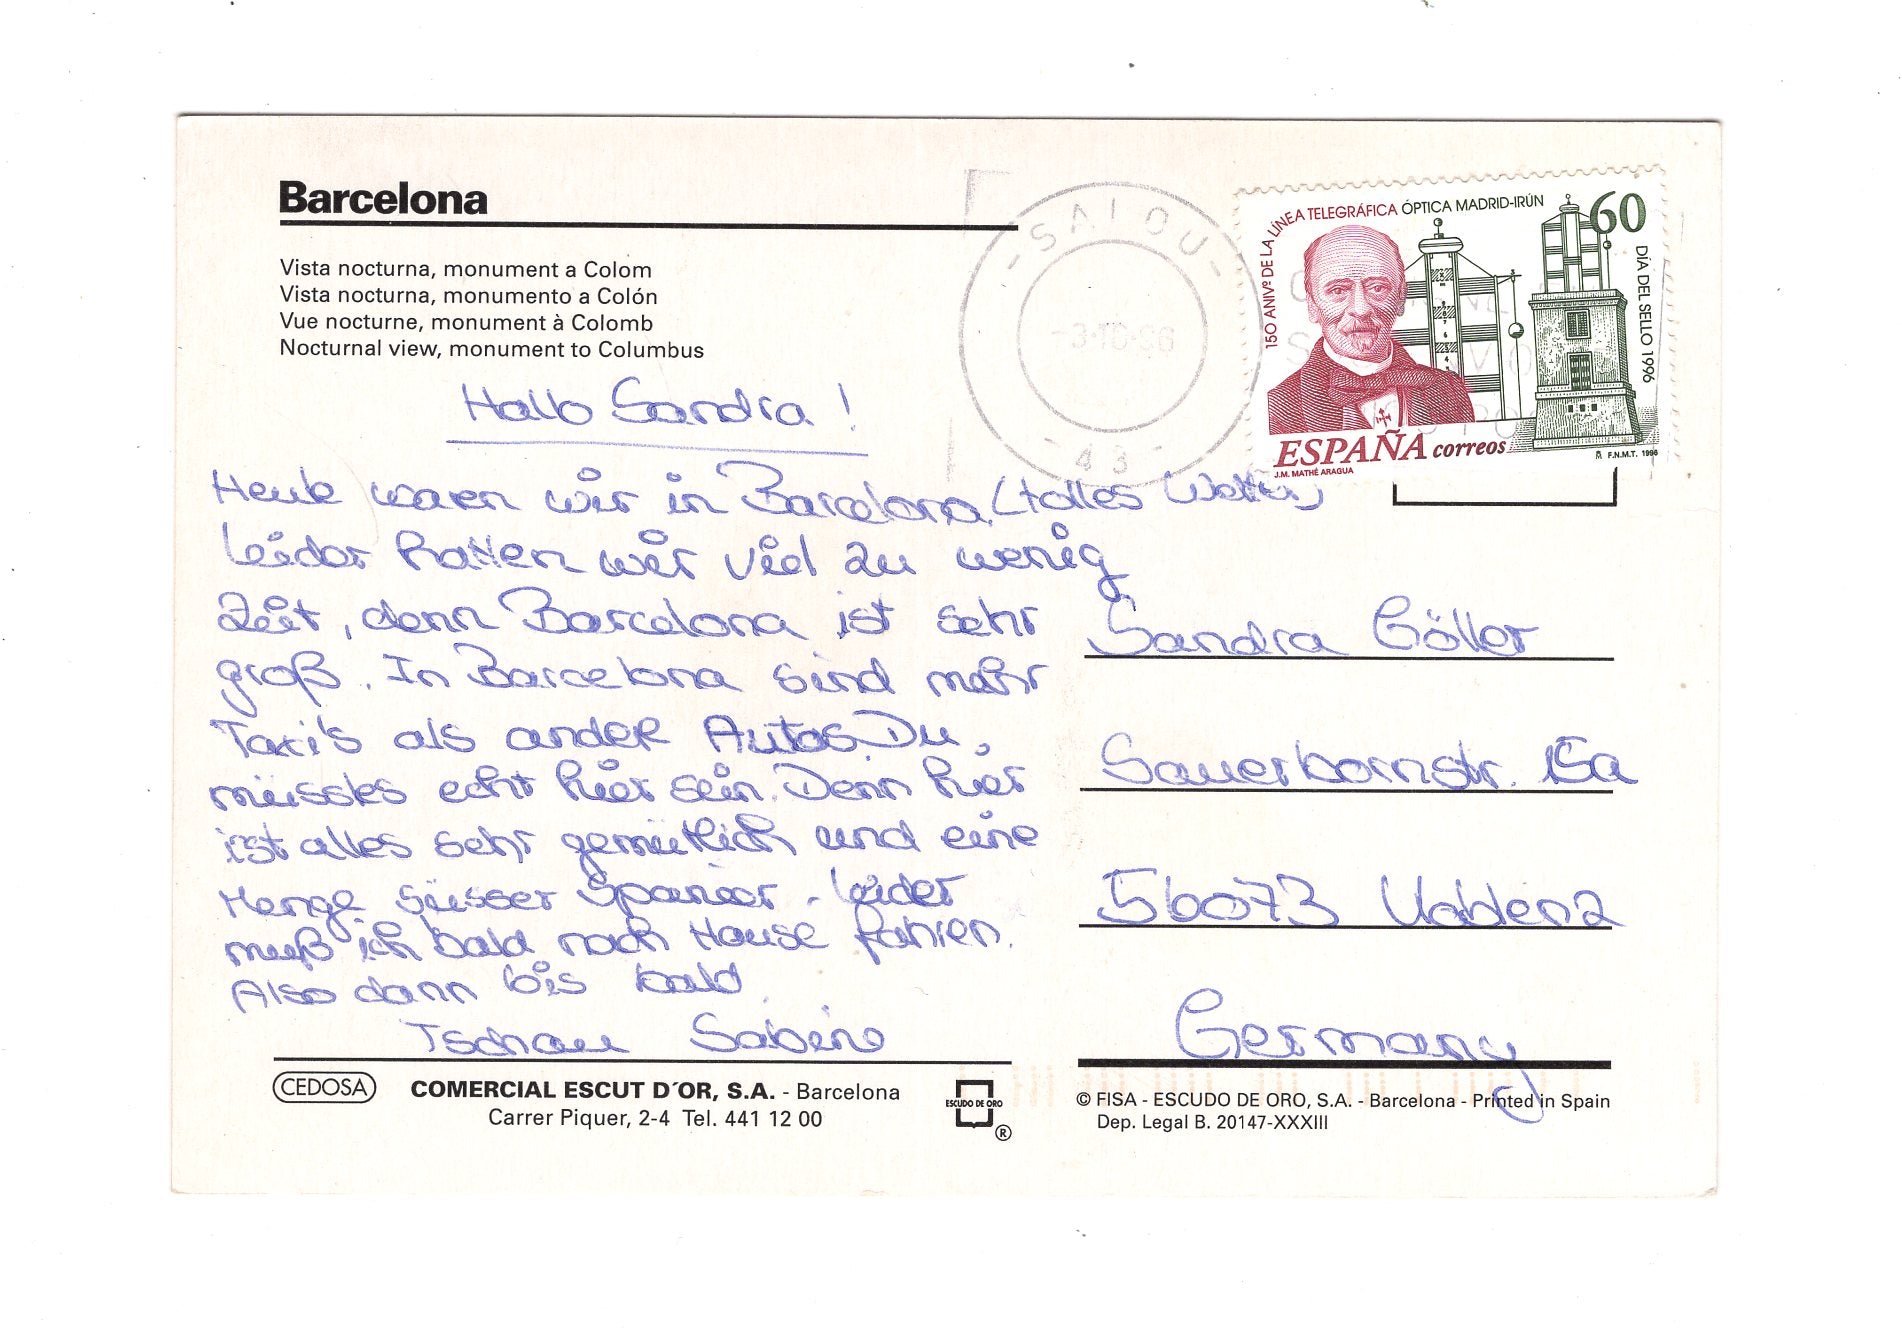 Barcelona
Vista nocturna, monument a Colom
Vista nocturna, monumento a Colón
Vue nocturne, monument à Colomb
Nocturnal view, monument to Columbus
Hallo Sandra!
Heute waren wir in Barcelona. (tolles Wetter)
Leider hatten wir viel zu wenig
Zeit, denn Barcelona ist sehr
groß. In Barcelona sind mehr
Taxi's als andere Autos. Du
müsstes echt hier sein. Denn hier
ist alles sehr gemütlich und eine
Menge süsser Spanier. Leider
muß ich bald nach Hause fahren.
Also dann bis bald
Tschau Sabine
CEDOSA
COMERCIAL ESCUT D´OR, S.A. - Barcelona
Carrer Piquer, 2-4 Tel. 441 12 00
ESCUDO DE ORO
®
- SALOU -
-3·10·96
- 43 -
150 ANIVº DE LA LÍNEA TELEGRÁFICA ÓPTICA MADRID-IRÚN
60
DÍA DEL SELLO 1996
ESPAÑA correos
J.M. MATHÉ ARAGUA
F.N.M.T. 1996
Sandra Göller
Sauerbornstr. 15a
56073 Koblenz
Germany
© FISA - ESCUDO DE ORO, S.A. - Barcelona - Printed in Spain
Dep. Legal B. 20147-XXXIII